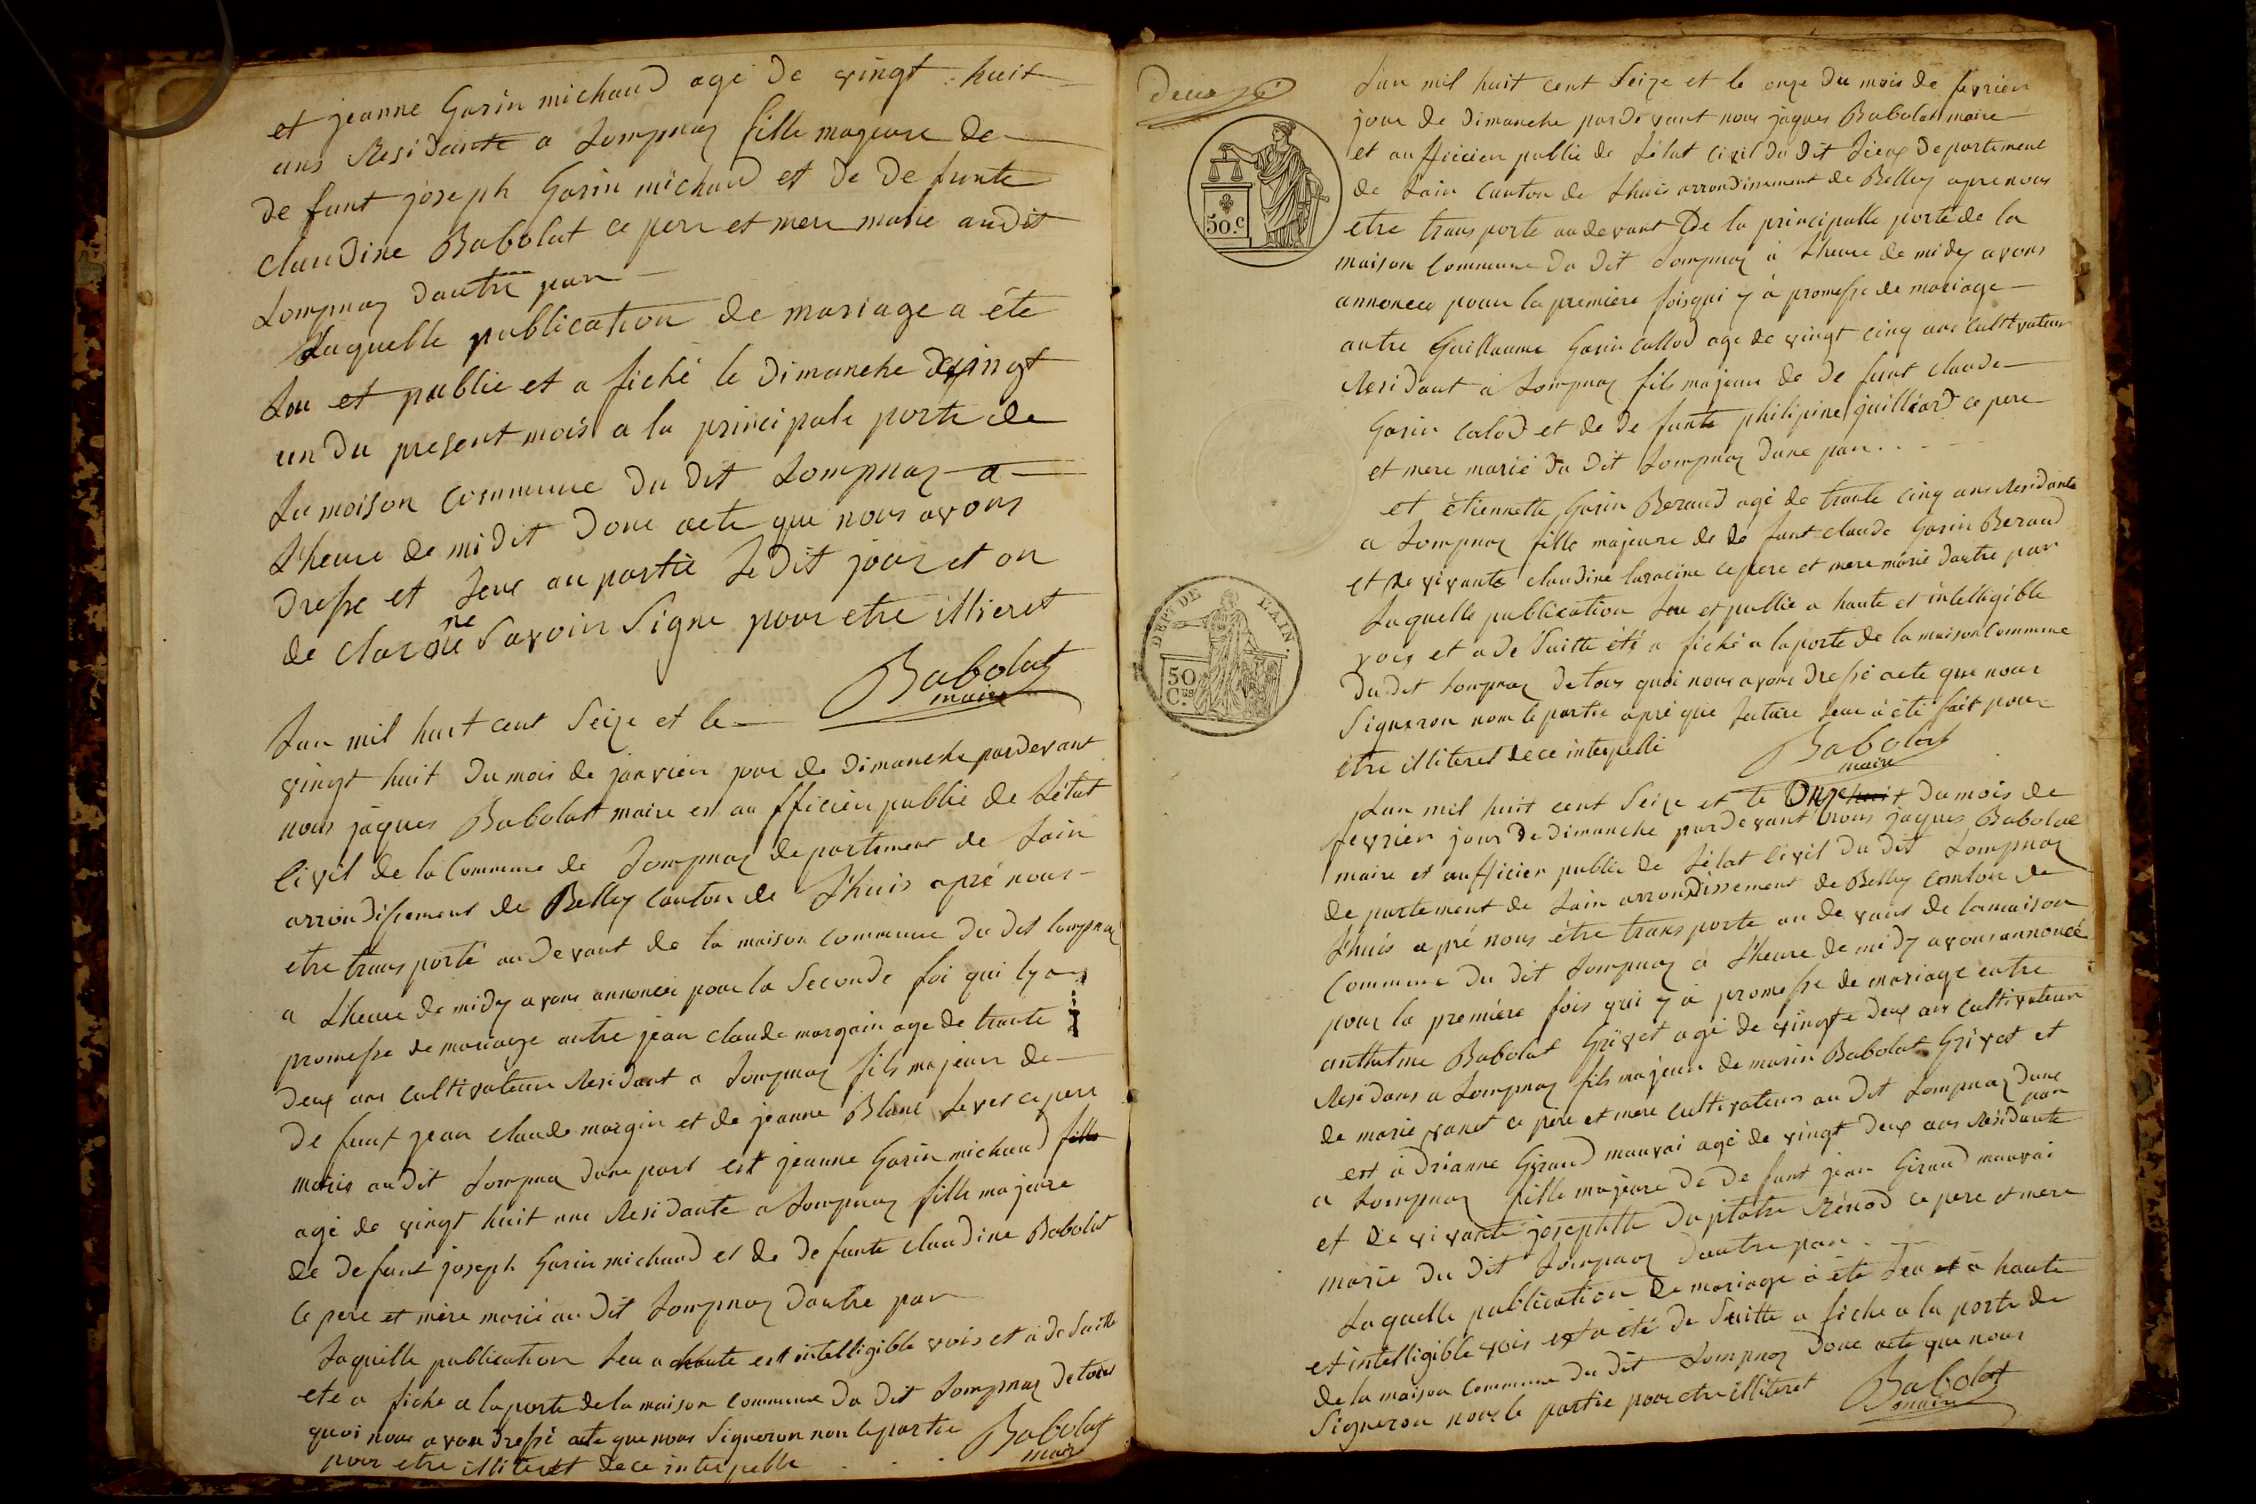 et jeanne Gorin michaud agé de vingt huit
ans Residante a Lompnaz fille mageure de
de funt joseph Gorin michaud et de de funte
claudine Babolat ce pere et mere marie audit
Lompnaz dautre par
Laquelle publication de mariage a éte
Lue et publie et a fiché le dimanche de vingt
un du present mois a la principale porte de
La moison commune du dit Lompnaz a
L'heure de midit donc acte que nous avons
Dresse et Leue au partie Le dit jour et on
de clare ne Savoir Signe pour etre illieret
Babolat
maire
Lan mil huit cent Seize et le
vingt huit du mois de janvier jour de dimanche pardevant
nous jaques Babolat maire et au fficier public de Létat
Civil de la Commune de Lompnaz departement de Lain
arrondissement de Belley canton de L'huis apré nous
etre transporté au devant de la maison commune du dit Lompnaz
a L'heure de midy avons annoncé pour la Seconde foi qui ly a
promesse de mariage entre jean claude margain age de trante
deux ans cultivateur Residant a Lompnaz fils majeur de
De funt jean claude margin et de jeanne Blanc ce pere
marie audit Lompnaz dune part est jeanne Gorin michaud fille
agé de vingt huit ans Residante a Lompnaz fille majeure
de defunt joseph Gorin michaud et de de funte claudine Babolat
Ce pere et mère marié au dit Lompnaz dautre par
Laquelle publication Leu a haute est intelligible vois et a de Suitte
eté a fiche a la porte de la maison commune du dit Lompnaz de tous
quoi nous avon dressé acte que nous Signeron non le partie
pour etre illiteret de ce interpelle
Babolat
maire
deux
50.c
DEPT DE L'AIN.
50 Ces
Lan mil huit cent Seize et le onze du mois de fevrier
jour de dimanche pardevant nous jaques Babolat maire
et au fficier public de Létat civil du dit Lieux departement
de Lain Canton de Lhuis arrondissement de Belley apre nous
etre transporte au devant De la principalle porte de la
maison Commune du dit Lompnaz à L'heure de midy avons
annoncée pour la premiere fois qui y à promesse de mariage
autre Guillaume Gorin Callod age de vingt cinq ans Cultivateur
Residant à Lompnaz fils majeur de de funt claude
Gorin calod et de de funte philipine juilliard ce pere
et mere marié du dit Lompnaz dune par
et étiennette Gorin Beraud agé de trante cinq ans Residante
a Lompnaz fille majeure de de funt claude Gorin Beraud
et de vivante claudine laracine ce pere et mere marié dautre par
Laquelle publication Leu et publie a haute et intéligible
vois et a de Suitte été a fiché a la porte de la maison Commune
du dit Lompnaz de tous quoi nous avons dressé acte que nous
Signeron non le partie apré que Lecture Leur a été fait pour
etre illiteret de ce interpellé
Babolat
maire
Lan mil huit cent Seize et le Onze du mois de
fevrier jour de dimanche pardevant nous jaques Babolat
maire et aufficier public de Létat Civil du dit Lompnaz
de partement de Lain arrondissement de Belley canton de
L'huis apré nous étre transporte au de vant de la maison
Commune du dit Lompnaz a L'heure de midy avons annoncé
pour la première fois qui y à promesse de mariage entre
anthelme Babolat Grivet agé de vingte deux ans cultivateur
Residans a Lompnaz fils majeur de marin Babolat Grivet et
de marie vanet ce père et mere cultivateur au dit Lompnaz dune
par
est à drianne Giraud mauvai agé de vingt deux ans Residante
a Lompnaz fille majeure de de funt jean Giraud mauvai
et de vivante josephtte du plâtre Rénod ce pere et mere
marie du dit Lompnaz dautre par
Laquelle publication de mariage à été Leu et a haute
et intelligible vois est a été de Suitte a fiche a la porte de
de la maison commune du dit Lompnaz donc acte que nous
Signeron nous le partie pour etre illiteret
Babolat
maire